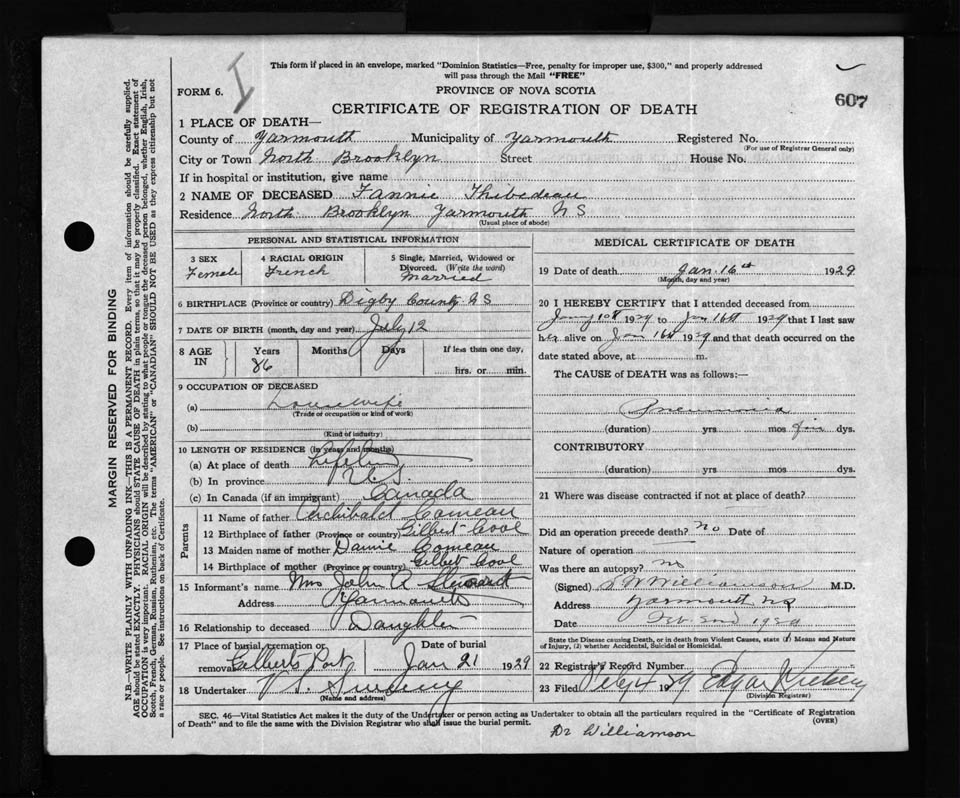 This form if placed in an envelope, marked "Dominion Statistics—Free, penalty for improper use, $300," and properly addressed
will pass through the Mail "FREE"
FORM 6.
I
PROVINCE OF NOVA SCOTIA
607
CERTIFICATE OF REGISTRATION OF DEATH
1 PLACE OF DEATH—
County of Yarmouth Municipality of Yarmouth Registered No.
(For use of Registrar General only)
City or Town North Brooklyn Street House No.
If in hospital or institution, give name
2 NAME OF DECEASED Fannie Thibedeau
Residence North Brooklyn Yarmouth N S
(Usual place of abode)
PERSONAL AND STATISTICAL INFORMATION
3 SEX
Female
4 RACIAL ORIGIN
French
5 Single, Married, Widowed or
Divorced. (Write the word)
Married
6 BIRTHPLACE (Province or country) Digby County N S
7 DATE OF BIRTH (month, day and year) July 12
8 AGE IN
Years
86
Months
Days
If less than one day,
hrs. or min.
9 OCCUPATION OF DECEASED
(a) Housewife
(Trade of occupation or kind of work)
(b)
(Kind of industry)
10 LENGTH OF RESIDENCE (in years and months)
(a) At place of death
(b) In province
(c) In Canada (if an immigrant) Canada
Parents
11 Name of father Archibald Comeau
12 Birthplace of father (Province or country) Gilbert Cove
13 Maiden name of mother Comeau
14 Birthplace of mother (Province or country) Gilbert Cove
15 Informant's name Mrs John A
Address Yarmouth
16 Relationship to deceased Daughter
17 Place of burial, cremation or
removal Gilberts
Date of burial
Jan 21 1929
18 Undertaker
(Name and address)
MEDICAL CERTIFICATE OF DEATH
19 Date of death Jan. 16th 1929
(Month, day and year)
20 I HEREBY CERTIFY that I attended deceased from
1929 to Jan 16th 1929 that I last saw
her alive on Jan 16th 1929 and that death occurred on the
date stated above, at m.
The CAUSE of DEATH was as follows:—
Pneumonia
(duration) yrs mos dys.
CONTRIBUTORY
(duration) yrs mos dys.
21 Where was disease contracted if not at place of death?
Did an operation precede death? no Date of
Nature of operation
Was there an autopsy? no
(Signed) Williamson M.D.
Address Yarmouth NS
Date Feb. 2nd 1929
State the Disease causing Death, or in death from Violent Causes, state (1) Means and Nature
of Injury, (2) whether Accidental, Suicidal or Homicidal.
22 Registrar's Record Number
23 Filed 1929 Edgar
(Division Registrar)
SEC. 46—Vital Statistics Act makes it the duty of the Undertaker or person acting as Undertaker to obtain all the particulars required in the "Certificate of Registration
of Death" and to file the same with the Division Registrar who shall issue the burial permit.
(OVER)
Dr Williamson
MARGIN RESERVED FOR BINDING
N.B.—WRITE PLAINLY WITH UNFADING INK—THIS IS A PERMANENT RECORD. Every item of information should be carefully supplied.
AGE should be stated EXACTLY. PHYSICIANS should STATE CAUSE OF DEATH in plain terms, so that it may be properly classified. Exact statement of
OCCUPATION is very important. RACIAL ORIGIN will be described by stating to what people or tongue the deceased person belonged, whether English, Irish,
Scotch, French, German, Russian, Ruthenian, etc. The terms "AMERICAN" or "CANADIAN" SHOULD NOT BE USED as they express citizenship but not
a race or people. See instructions on back of Certificate.